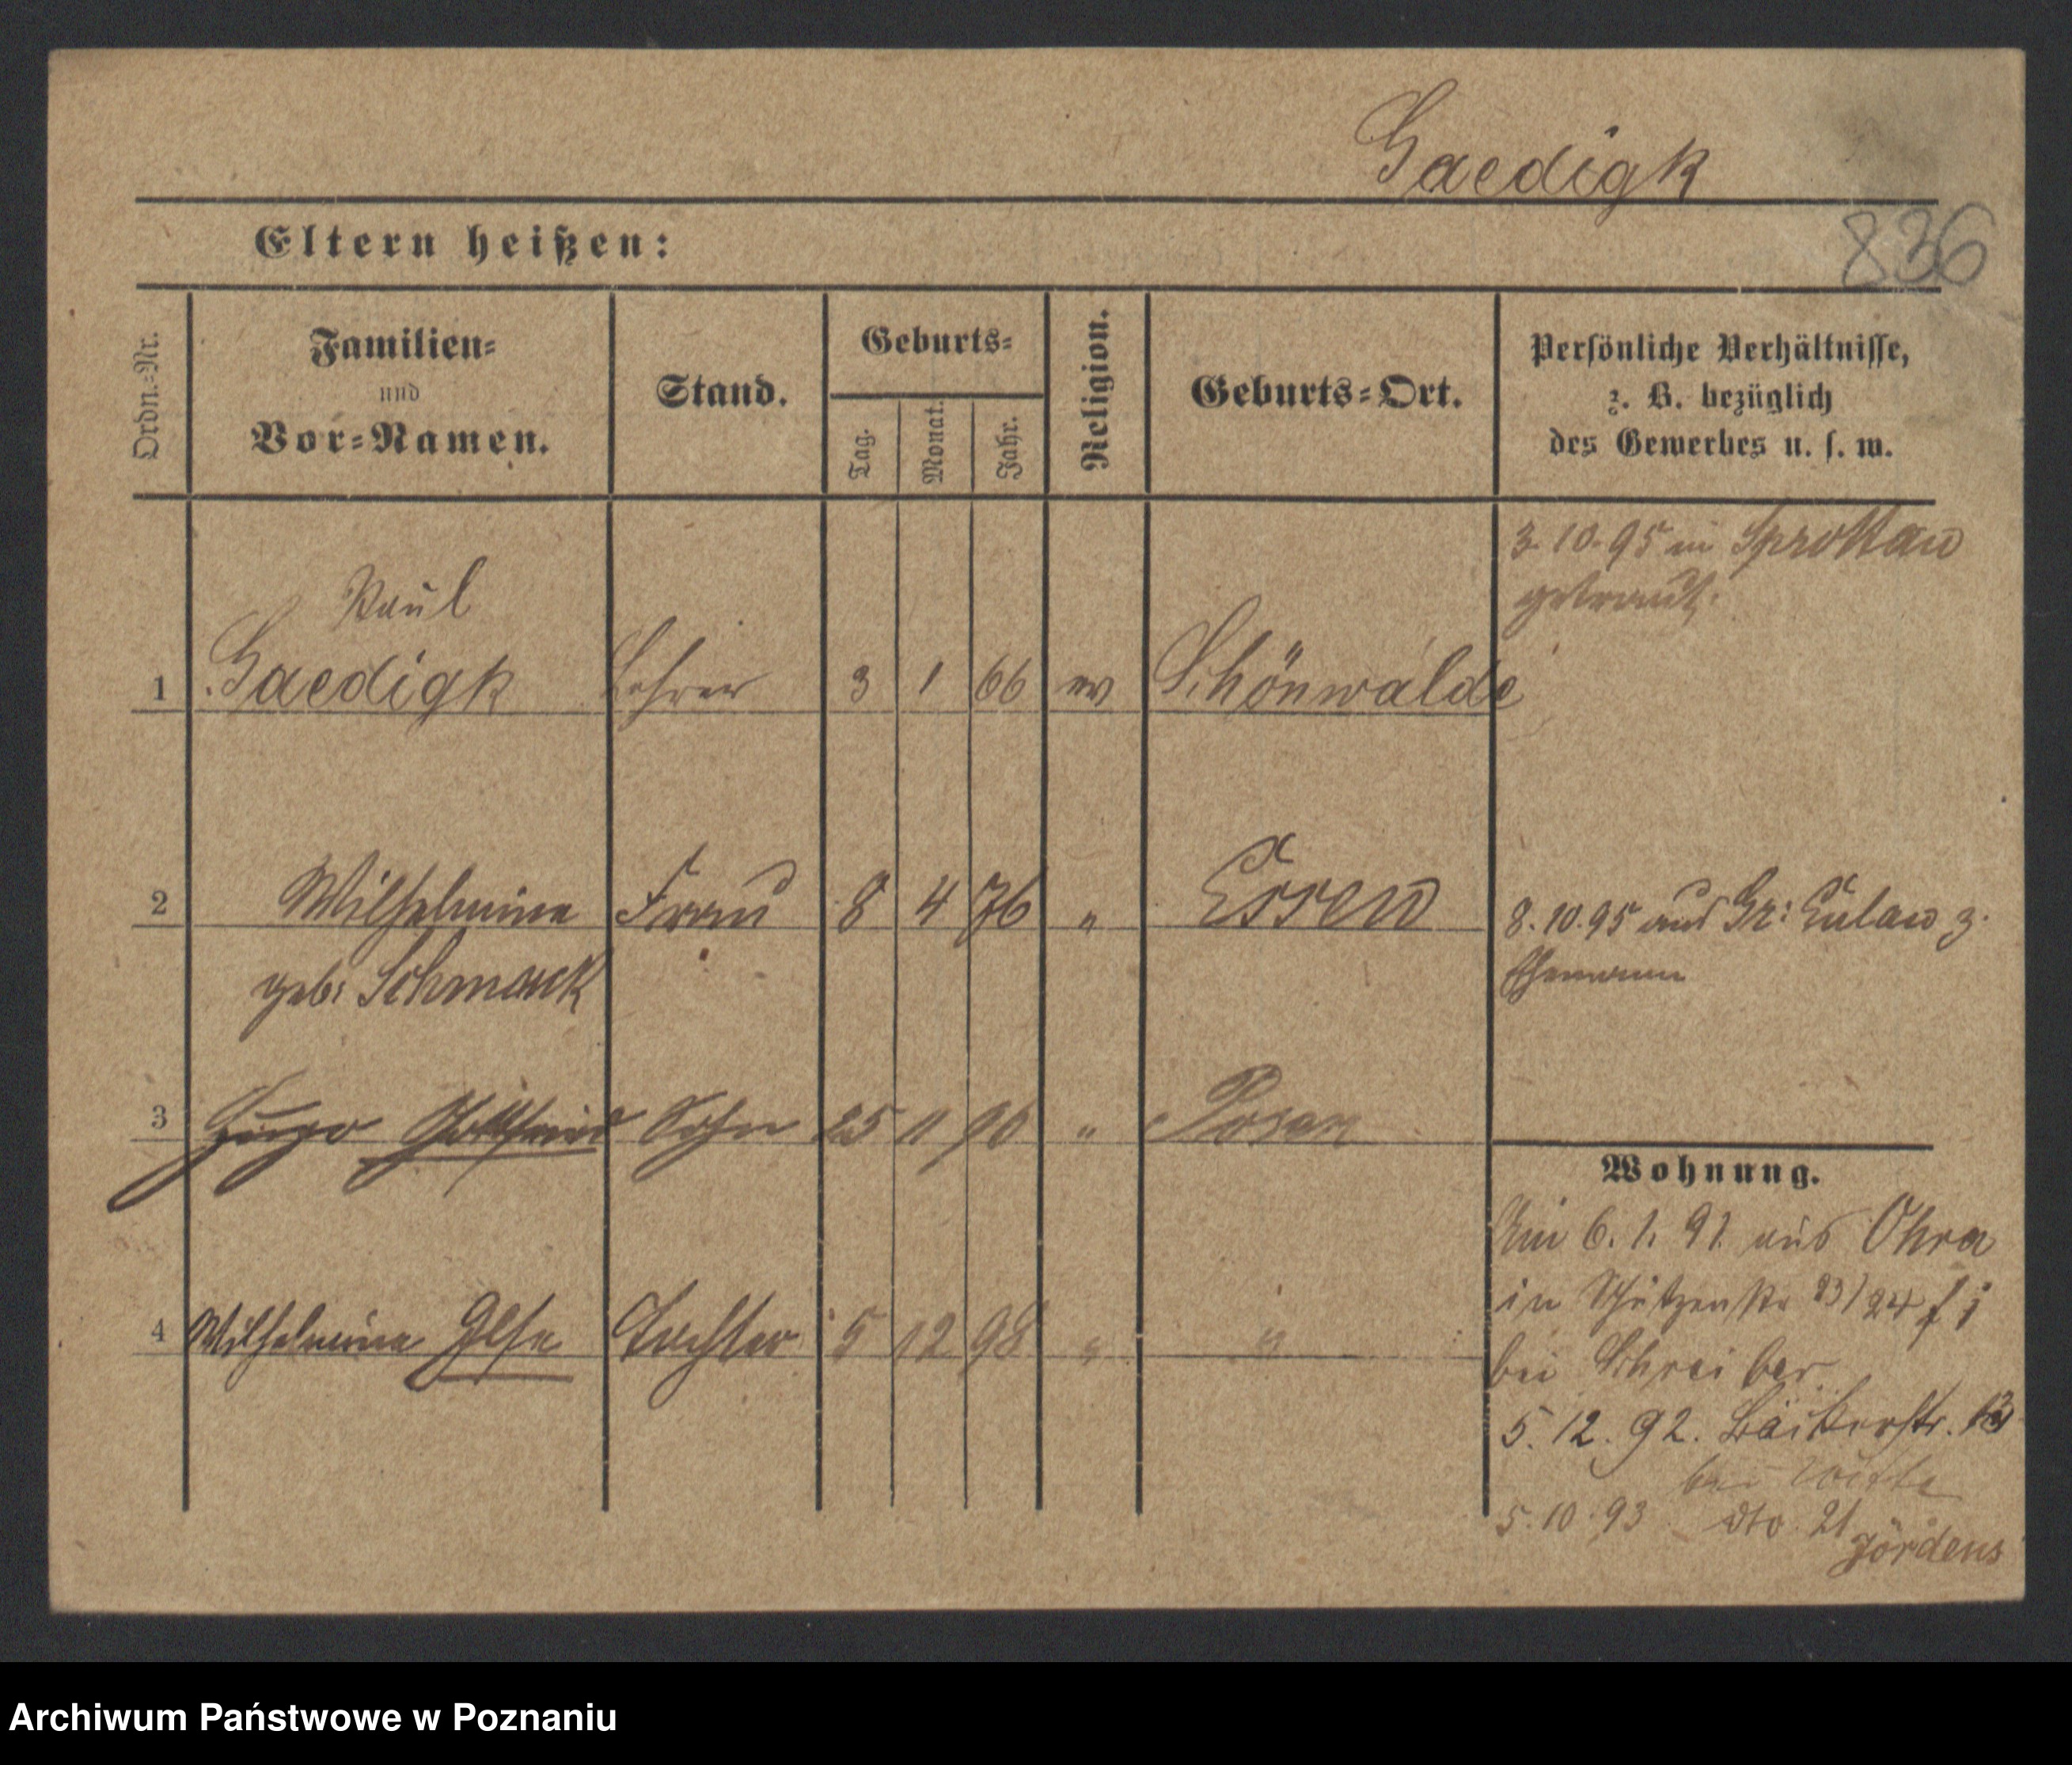 Gaedigk
836
Eltern heißen:
Ordn.-Nr.
Familien-
und
Vor-Namen.
Stand.
Geburts-
Tag.
Monat.
Jahr.
Religion.
Geburts-Ort.
Persönliche Verhältnisse,
z. B. bezüglich
des Gewerbes u. s. w.
3. 10. 95 in Sprottau
getraut.
Paul
1 Gaedigk Lehrer 3 1 66 ev Schönwalde
2 Wilhelmine Frau 8 4 76 " Essen
8. 10. 95 aus Gr: Eulau z.
Ehemann
geb: Schmauk
3 Hugo Gottfried Sohn 25 11 96 " Posen
Wohnung.
Am 6. 1. 91. aus Ohra
in Schützenstr 23/24
bei Schreiber
4 Wilhelmine Else Tochter 5 12 98 " "
5. 12. 92. Bäckerstr. 13
bei
5. 10. 93 dto. 21
Jördens
Archiwum Państwowe w Poznaniu